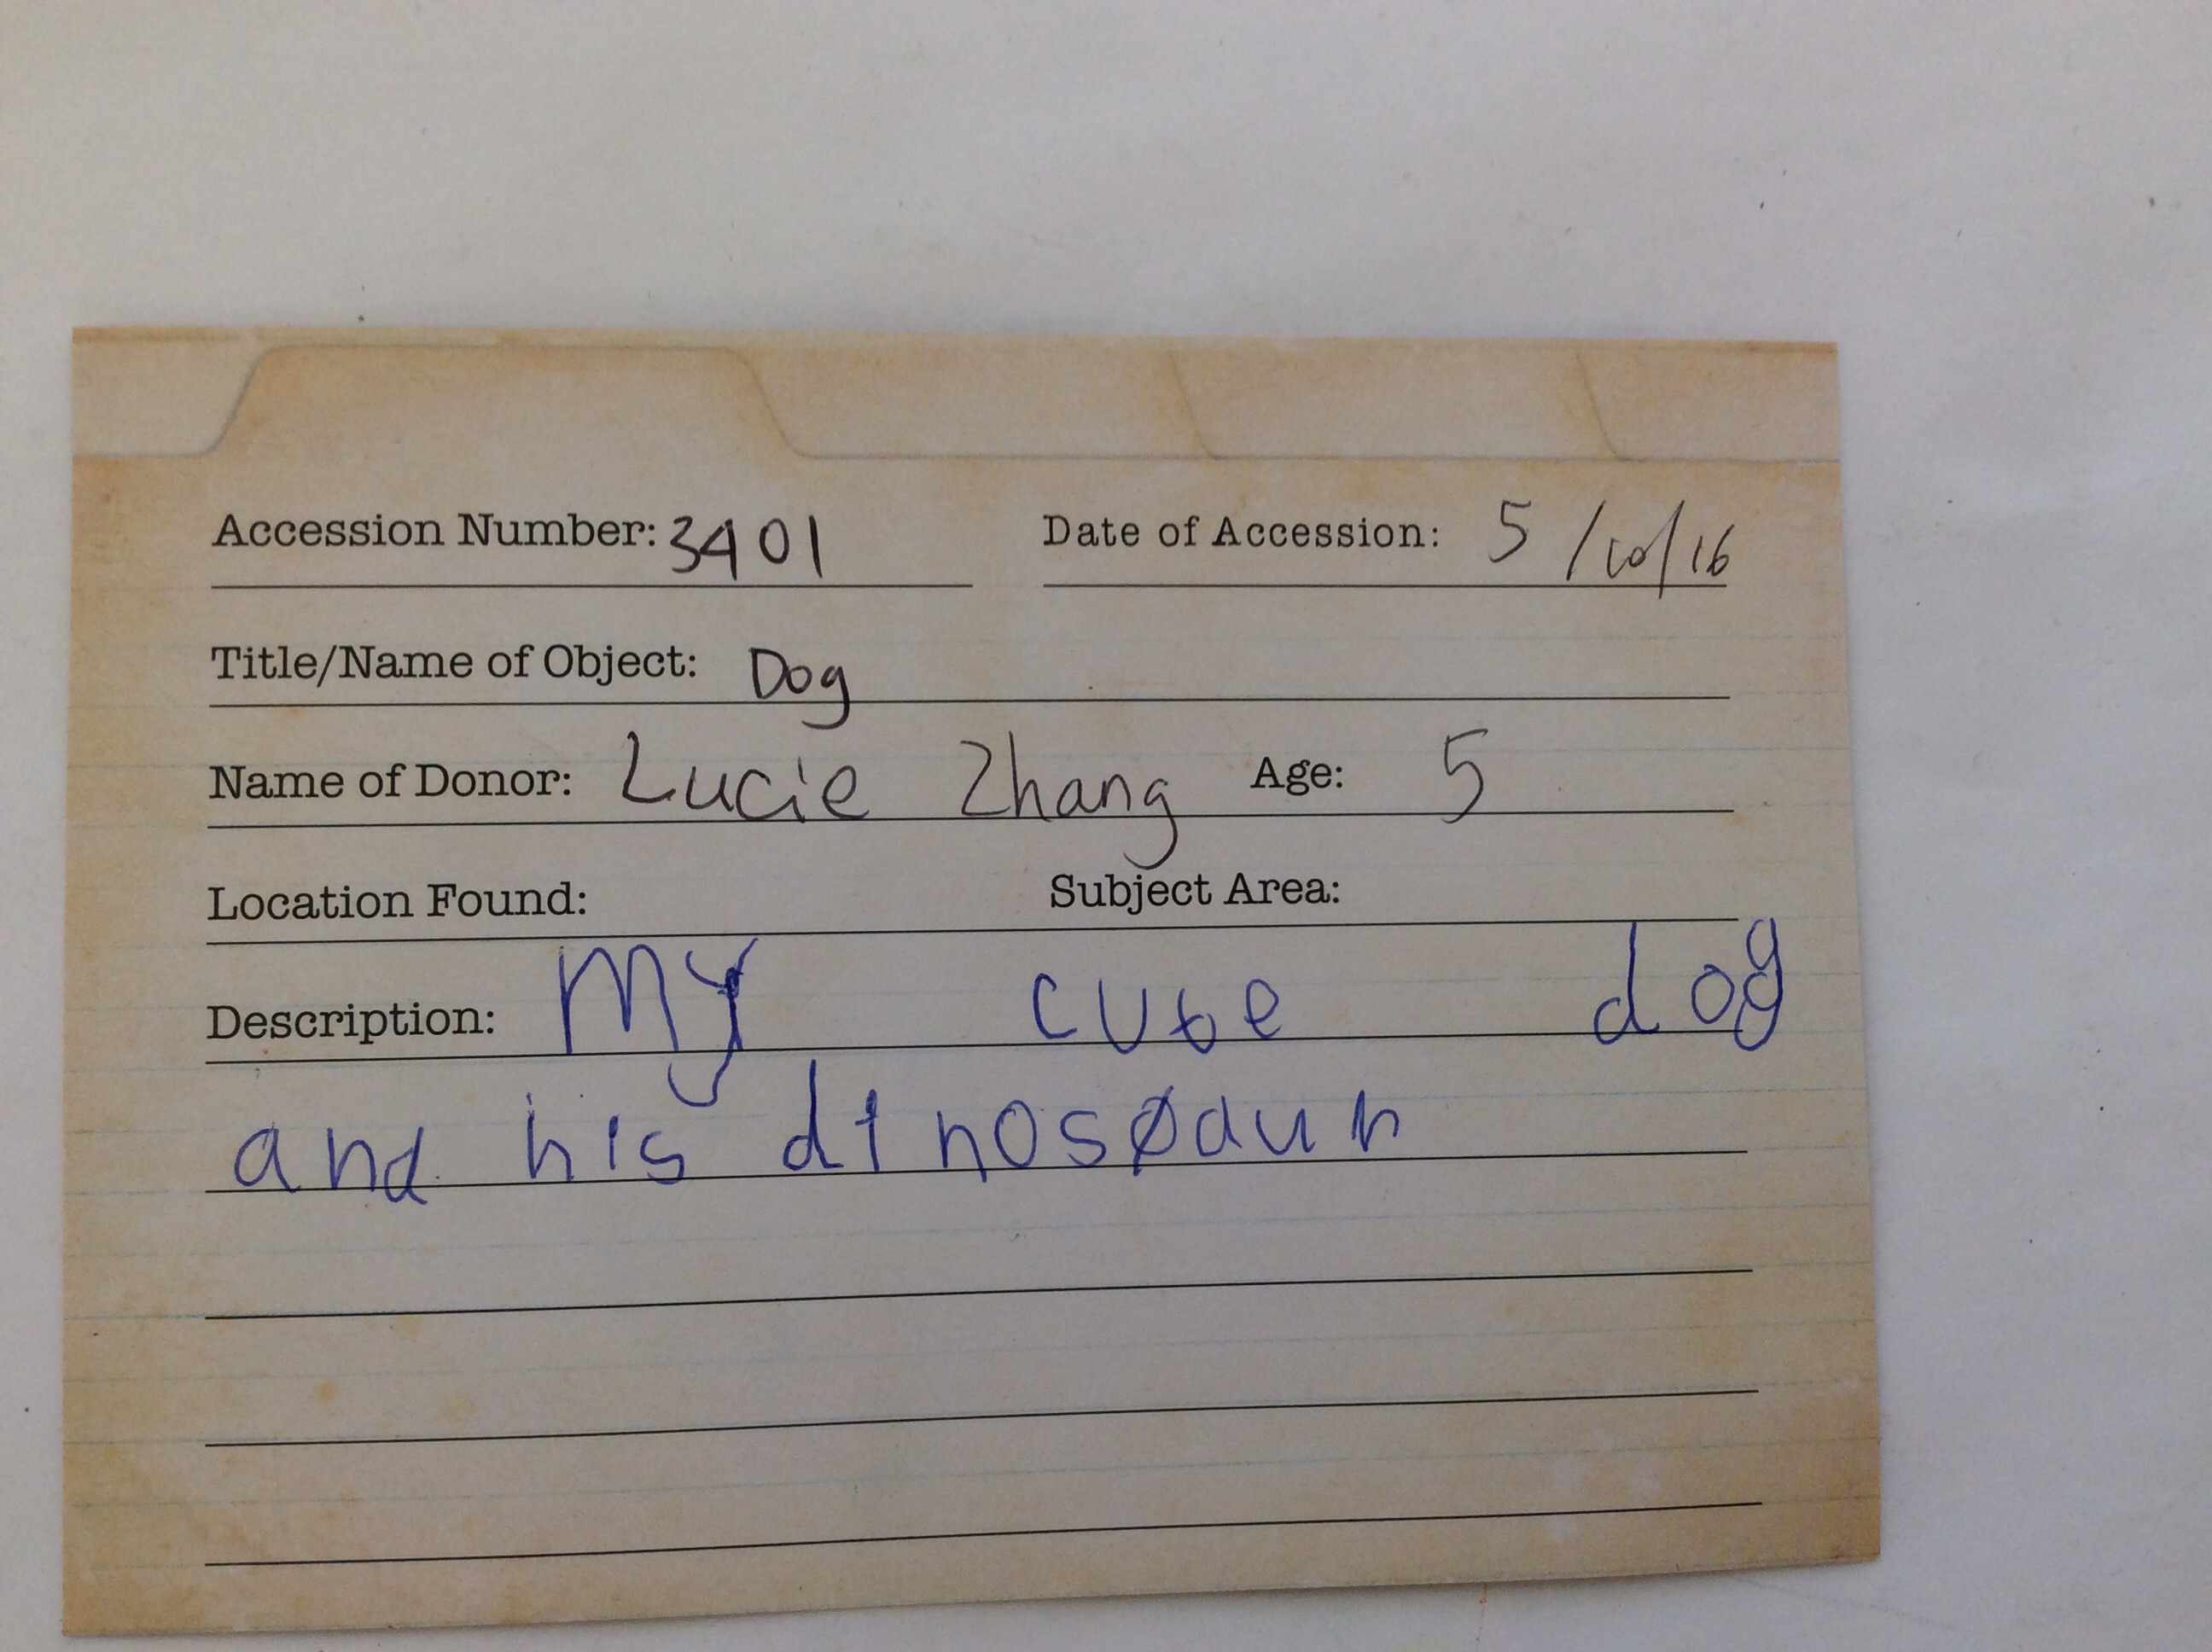 Accession Number: 3401 Date of Accession: 5/10/16
Title/Name of Object: Dog
Name of Donor: Lucie Zhang Age: 5
Location Found: Subject Area:
Description: My cute dog
and his